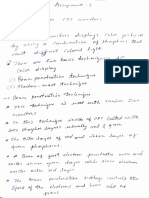 Assignment-2
CRT monitors
monitors displays color pictures
by using a combination of phosphors that
emit different colored light.
There are two basic techniques for
color display
Beam penetration technique
Shadow mask technique
Beam penetration technique
This technique is used with random scan
monitors
In this technique inside of CRT coated with
two phosphor layers usually red & green
The outer layer of red and inner layer of
green phosphors
A beam of fast electron penetrates outer and
excites inner green layer while slow electron
excites outer red layer
The beam acceleration voltage controls the
speed of the electrons and hence color of